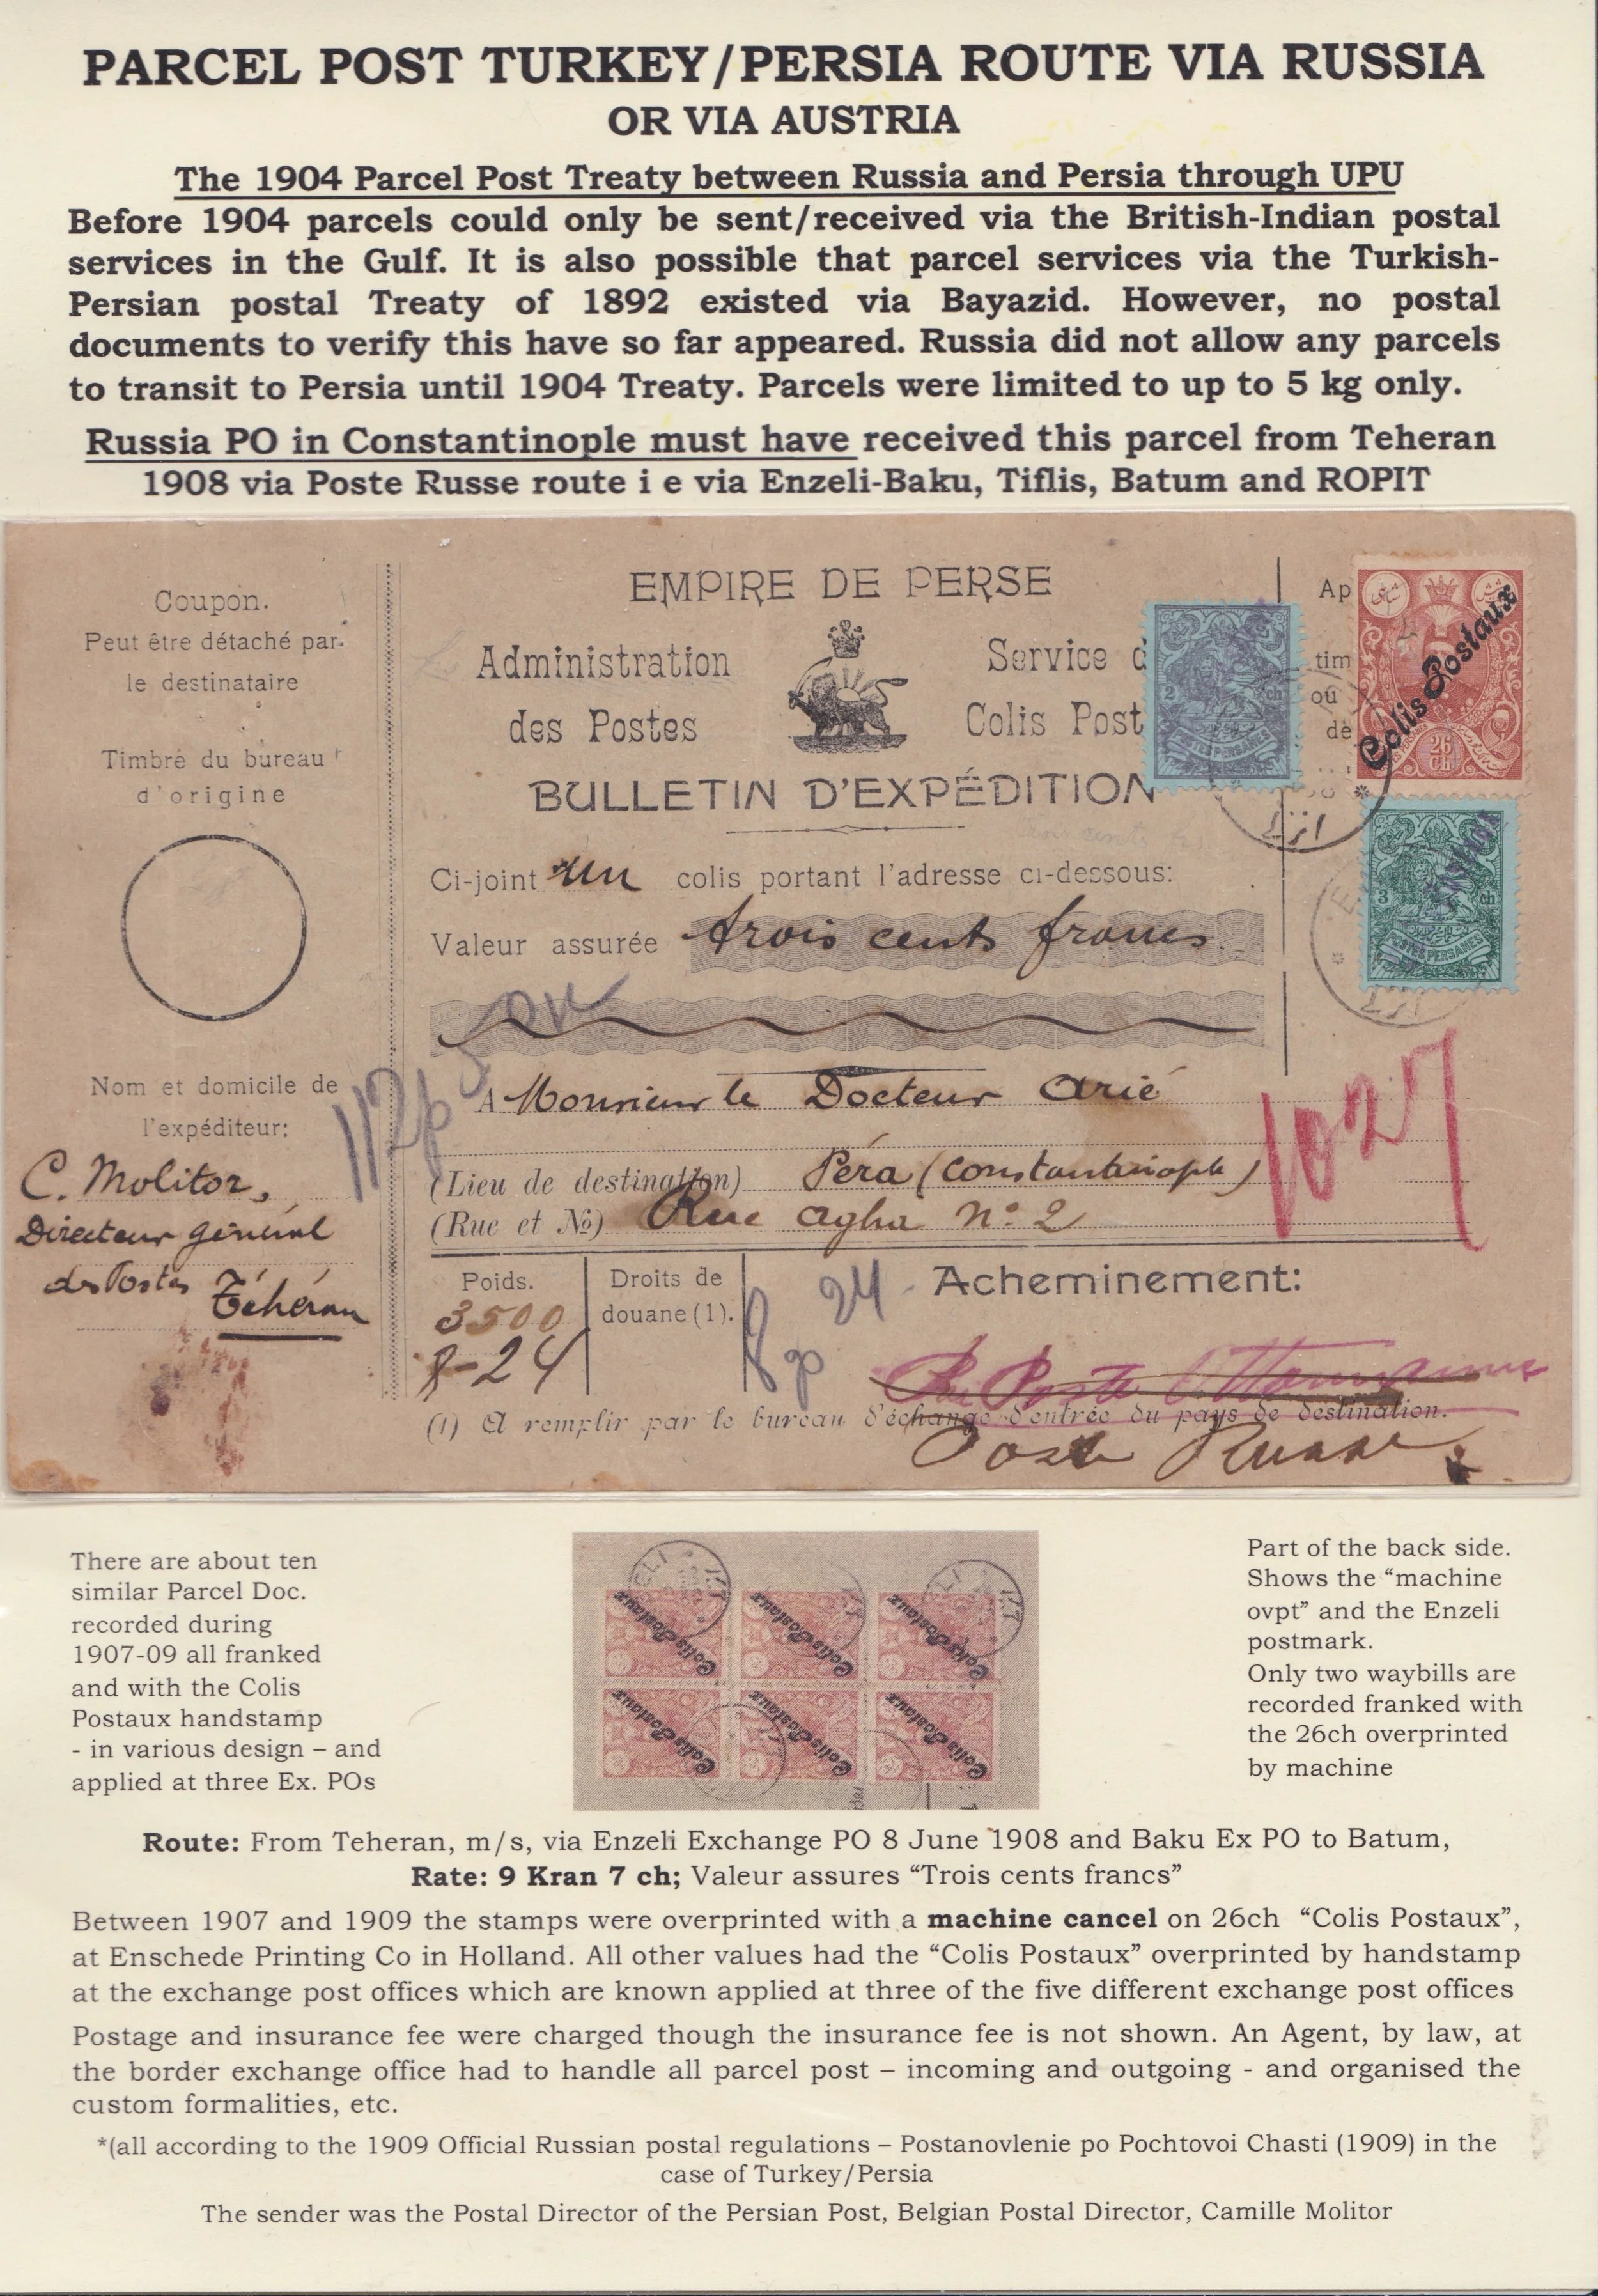 PARCEL POST TURKEY/PERSIA ROUTE VIA RUSSIA
OR VIA AUSTRIA
The 1904 Parcel Post Treaty between Russia and Persia through UPU
Before 1904 parcels could only be sent/received via the British-Indian postal
services in the Gulf. It is also possible that parcel services via the Turkish-
Persian postal Treaty of 1892 existed via Bayazid. However, no postal
documents to verify this have so far appeared. Russia did not allow any parcels
to transit to Persia until 1904 Treaty. Parcels were limited to up to 5 kg only.
Russia PO in Constantinople must have received this parcel from Teheran
1908 via Poste Russe route i e via Enzeli-Baku, Tiflis, Batum and ROPIT
Coupon.
Peut être détaché par
le destinataire
Timbre du bureau
d'origine
Nom et domicile de
l'expéditeur:
C. Molitor,
Directeur général
des Postes Téhéran
EMPIRE DE PERSE
Administration
des Postes
Service d
Colis Post
BULLETIN D'EXPÉDITION
Ci-joint un colis portant l'adresse ci-dessous:
Valeur assurée trois cents francs
A Monsieur le Docteur Arié
(Lieu de destination) Péra (Constantinople)
(Rue et No) Rue Agha No. 2
Poids.
3500
8-24
Droits de
douane (1).
Acheminement:
Poste Ottomane
(1) A remplir par le bureau d'échange d'entrée du pays de destination.
Poste Russe
Ap
tim
ou
dè
2 ch
POSTES PERSANES
Colis Postaux
26
ch
3 ch
POSTES PERSANES
112p
24
1027
There are about ten
similar Parcel Doc.
recorded during
1907-09 all franked
and with the Colis
Postaux handstamp
- in various design – and
applied at three Ex. POs
Colis Postaux
Colis Postaux
Colis Postaux
Colis Postaux
Colis Postaux
Colis Postaux
Part of the back side.
Shows the “machine
ovpt” and the Enzeli
postmark.
Only two waybills are
recorded franked with
the 26ch overprinted
by machine
Route: From Teheran, m/s, via Enzeli Exchange PO 8 June 1908 and Baku Ex PO to Batum,
Rate: 9 Kran 7 ch; Valeur assures “Trois cents francs”
Between 1907 and 1909 the stamps were overprinted with a machine cancel on 26ch “Colis Postaux”,
at Enschede Printing Co in Holland. All other values had the “Colis Postaux” overprinted by handstamp
at the exchange post offices which are known applied at three of the five different exchange post offices
Postage and insurance fee were charged though the insurance fee is not shown. An Agent, by law, at
the border exchange office had to handle all parcel post – incoming and outgoing - and organised the
custom formalities, etc.
*(all according to the 1909 Official Russian postal regulations – Postanovlenie po Pochtovoi Chasti (1909) in the
case of Turkey/Persia
The sender was the Postal Director of the Persian Post, Belgian Postal Director, Camille Molitor